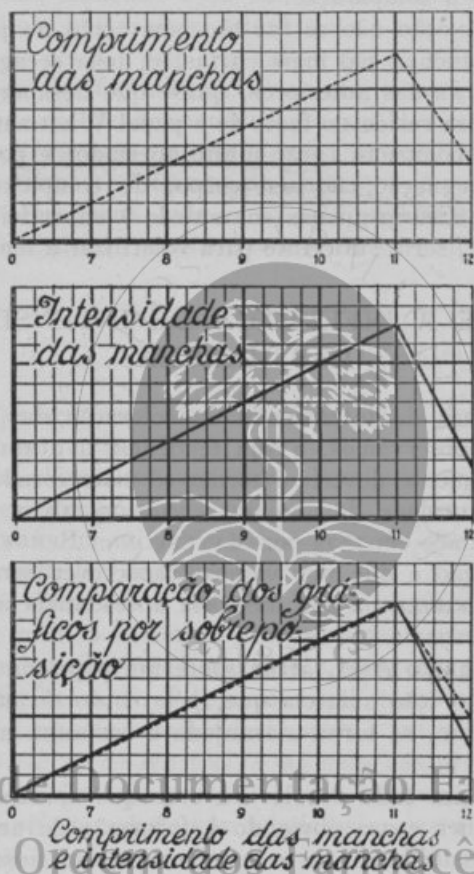 Comprimento
das manchas
6 7 8 9 10 11 12
Intensidade
das manchas
6 7 8 9 10 11 12
Comparação dos grá-
ficos por sobrepo-
sição
6 7 8 9 10 11 12
de Documentação Fa
Comprimento das manchas
e intensidade das manchas
Ordem dos Farmacê